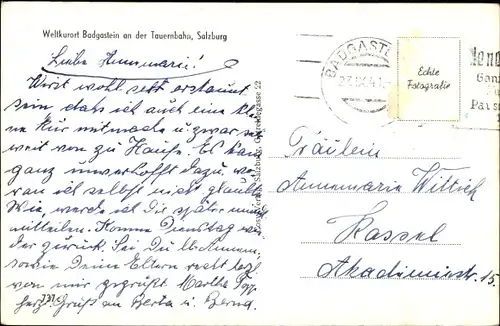 Weltkurort Badgastein an der Tauernbahn, Salzburg
Liebe Annemarie!
Wirst wohl sehr erstaunt
sein daß ich auch eine kl.
Kur mitmache u zwar so
weit von zu Hause. Es kam
ganz unverhofft dazu, wo-
ran ich selbst nicht glaubte
Wie, werde ich Dir später
mitteilen. Komme Dienstag wie-
der zurück. Sei Du lb. Annem.
sowie Deine Eltern recht
von mir gegrüßt Martha
herz. Gruß an Berta u. Bernd.
737
22
BADGASTEIN
27.IX.
Echte
Fotografie
Fräulein
Annemarie Wittich
Kassel
Akademiestr. 15.